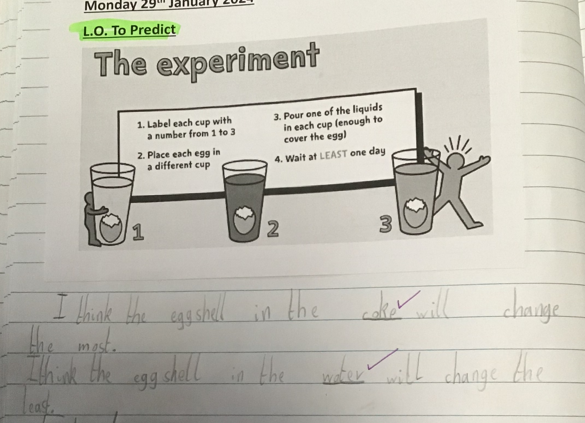 Monday 29th January 2024
L.O. To Predict
The experiment
1. Label each cup with
a number from 1 to 3
2. Place each egg in
a different cup
3. Pour one of the liquids
in each cup (enough to
cover the egg)
4. Wait at LEAST one day
1
2
3
I think the eggshell in the coke will change
the most.
I think the eggshell in the water will change the
least.